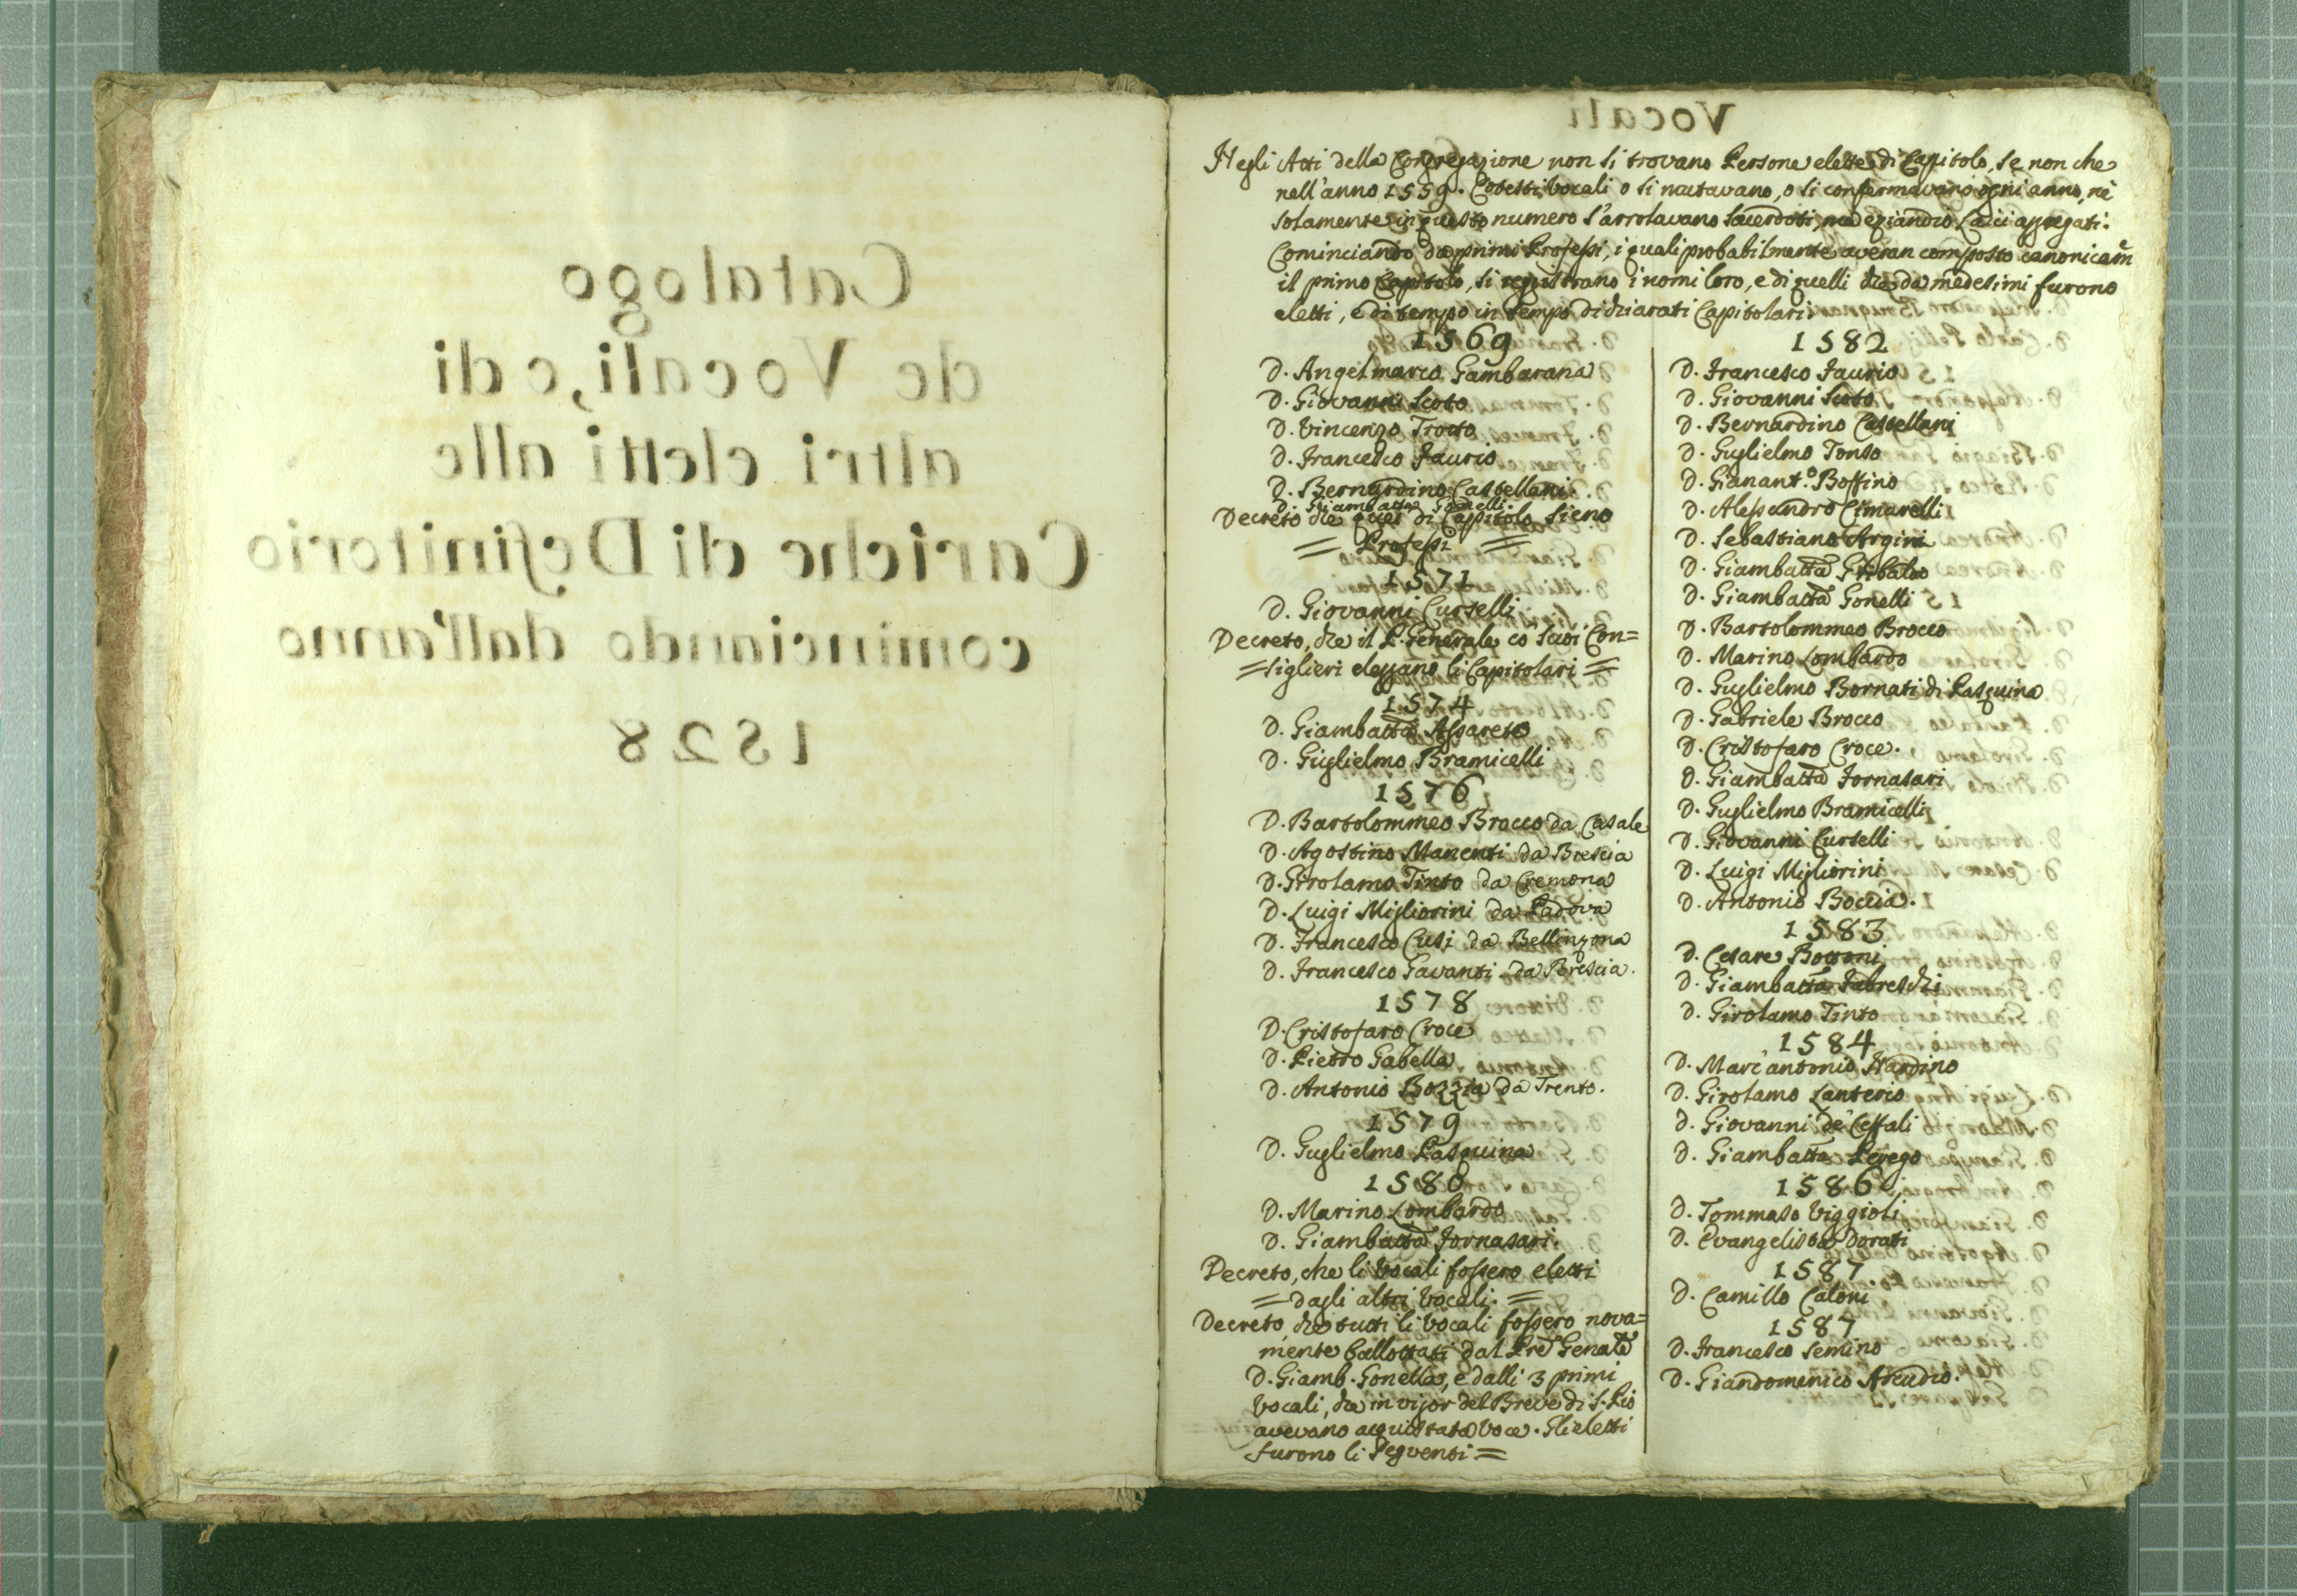 Catalogo
de Vocali, e di
altri eletti alle
Cariche di Definitorio
cominciando dall'anno
1528
Vocali
Negli Atti della Congregazione non si trovano Persone elette di Capitolo, se non che
nell'anno 1559. Cotesti Vocali o si mutavano, o si confermavano ogni anno, nè
solamente in questo numero s'arrolavano Sacerdoti, ma eziandio Laici aggregati.
Cominciando da primi Professi, i quali probabilmente averan composto canonicam̃
il primo Capitolo, si registrano i nomi loro, e di quelli che da medesimi furono
eletti, e di tempo in tempo dichiarati Capitolari
1569
D. Angelmarco Gambarana
D. Giovanni Scoto
D. Vincenzo Trotto
D. Francesco Faurio
D. Bernardino Castellani
D. Giambatta Gonelli
Decreto che quei di Capitolo sieno
= Professi =
1571
D. Giovanni Curselli
Decreto, che il P. Generale co suoi Con=
=siglieri eleggano li Capitolari =
1574
D. Giambatta Assareto
D. Guglielmo Bramicelli
1576
D. Bartolommeo Brocco da Casale
D. Agostino Manenti da Brescia
D. Girolamo Tinto da Cremona
D. Luigi Migliorini da Padova
D. Francesco Cusi da Bellinzona
D. Francesco Gavanti da Brescia.
1578
D. Cristofaro Croce
D. Pietro Gabella
D. Antonio Bozzia da Trento.
1579
D. Guglielmo Pasquina
1580
D. Marino Lombardo
D. Giambatta Fornasari.
Decreto, che li Vocali fossero eletti
= dagli altri Vocali. =
Decreto, che tutti li Vocali fossero nova=
mente ballottati dal Pre Genale
D. Giamb. Gonella, e dalli 3 primi
Vocali, che in vigor del Breve di S. Pio
avevano acquistata Voce. Gli eletti
furono li seguenti =
1582
D. Francesco Faurio
D. Giovanni Scoto
D. Bernardino Castellani
D. Guglielmo Tonso
D. Gianant.º Boffino
D. Alessandro Cimarelli
D. Sebastiano Argiri
D. Giambatta Gribaldo
D. Giambatta Gonelli
D. Bartolommeo Brocco
D. Marino Lombardo
D. Guglielmo Bornati di Pasquina
D. Gabriele Brocco
D. Cristofaro Croce.
D. Giambatta Fornasari
D. Guglielmo Bramicelli
D. Giovanni Curselli
D. Luigi Migliorini
D. Antonio Boccia.
1583
D. Cesare Bottoni
D. Giambatta Fabreschi
D. Girolamo Tinto
1584
D. Marc'antonio Nardino
D. Girolamo Lanterio
D. Giovanni de' Ceffali
D. Giambatta Perego
1586
D. Tommaso Viggioli
D. Evangelista Dorati
1587
D. Camillo Caloni
1587
D. Francesco Semino
D. Giandomenico Arcudio.